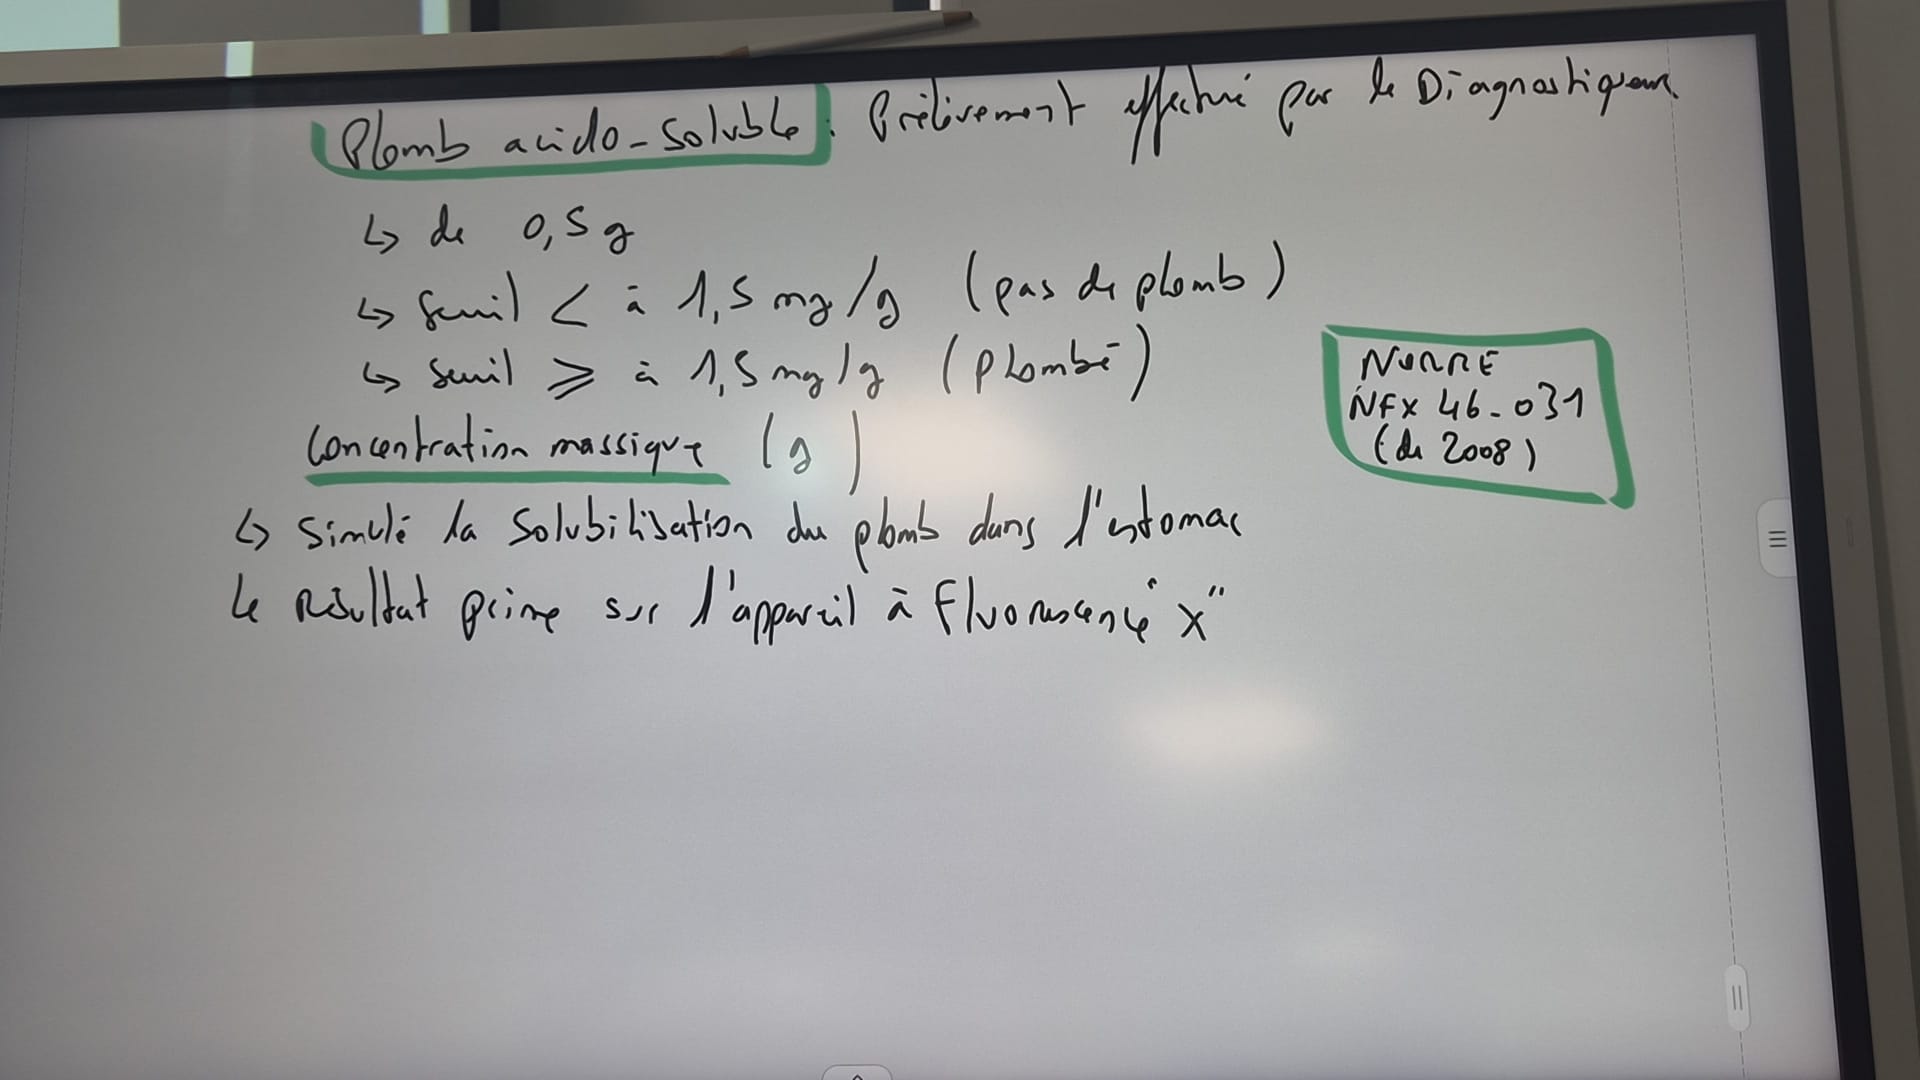 Plomb acido-soluble : Prélèvement effectué par le Diagnostiqueur.
↳ de 0,5 g
↳ Seuil < à 1,5 mg/g (pas de plomb)
↳ Seuil ⩾ à 1,5 mg/g (Plombé)
NORME
NFX 46-031
(de 2008)
Concentration massique (g)
↳ Simulé la Solubilisation du plomb dans l'estomac
Le Résultat prime sur l'appareil à Fluorescence "X"